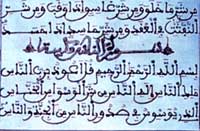 من شر ما خلق ومن شر غاسق اذا وقب ومن شر
النفثت في العقد ومن شر حاسد اذا حسد
سورة الناس
بسم الله الرحمن الرحيم قل اعوذ برب الناس
ملك الناس اله الناس من شر الوسواس الخناس
الذي يوسوس في صدور الناس من الجنة والناس